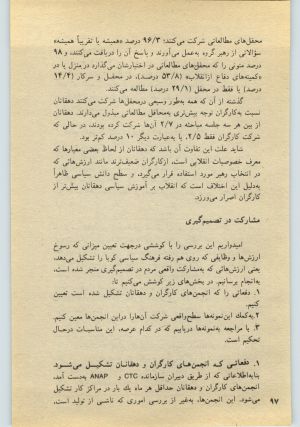 محفل‌های مطالعاتی شرکت می‌کنند؛ ۹۶/۳ درصد «همیشه یا تقریباً همیشه»
سؤالاتی از رهبر گروه به‌عمل می‌آورند و پاسخ آن را دریافت می‌کنند، و ۹۸
درصد متونی را که محفل‌های مطالعاتی در اختیارشان می‌گذارد در منزل یا در
«کمیته‌های دفاع ازانقلاب» (۵۳/۸ درصد)، در محفل و سرکار (۱۴/۴
درصد) یا فقط در محفل (۲۹/۱ درصد) مطالعه می‌کنند.
گذشته از آن که همه به‌طور وسیعی درمحفل‌ها شرکت می‌کنند دهقانان
نسبت به‌کارگران توجه بیش‌تری به‌محافل مطالعاتی مبذول می‌دارند. دهقانان
از بین هر سه جلسه مباحثه در ۲/۷ آن‌ها شرکت کرده بودند، در حالی که
شرکت کارگران فقط ۲/۵، یا به‌عبارت دیگر ۱۰ درصد کم‌تر بود.
شاید علت این تفاوت آن باشد که دهقانان از لحاظ بعضی معیارها که
معرف خصوصیات انقلابی است، ازکارگران ضعیف‌ترند مانند ارزش‌هائی که
در انتخاب رهبر مورد استفاده قرار می‌گیرد، و سطح دانش سیاسی ظاهراً
به‌دلیل این اختلاف است که انقلاب بر آموزش سیاسی دهقانان بیش‌تر از
کارگران اصرار می‌ورزد.
مشارکت در تصمیم‌گیری
امیدواریم این بررسی را با کوششی درجهت تعیین میزانی که رسوخ
ارزش‌ها و وظایفی که روی هم رفته فرهنگ سیاسی کوبا را تشکیل می‌دهد،
یعنی ارزش‌هائی که به‌مشارکت واقعی مردم در تصمیم‌گیری منجر شده است،
به‌انجام برسانیم. در بخش‌های زیر کوشش می‌کنیم تا:
۱. دفعاتی را که انجمن‌های کارگران و دهقانان تشکیل شده است تعیین
کنیم.
۲. به‌کمک این‌نمونه‌ها سطح‌واقعی شرکت آن‌هارا دراین انجمن‌ها معین کنیم.
۳. با مراجعه به‌نمونه‌ها دریابیم که در کدام عرصه، این مناسبات درحال
تحکیم است.
۱. دفعاتی که انجمن‌های کارگران و دهقانان تشکیل می‌شود.
بنابه‌اطلاعاتی که از طریق دبیران سازمانده CTC و ANAP به‌دست آمد،
انجمن‌های کارگران و دهقانان حداقل هر ماه یک بار در مراکز کار تشکیل
می‌شود. این انجمن‌ها، به‌غیر از بررسی اموری که ناشی از تولید است،
۹۷